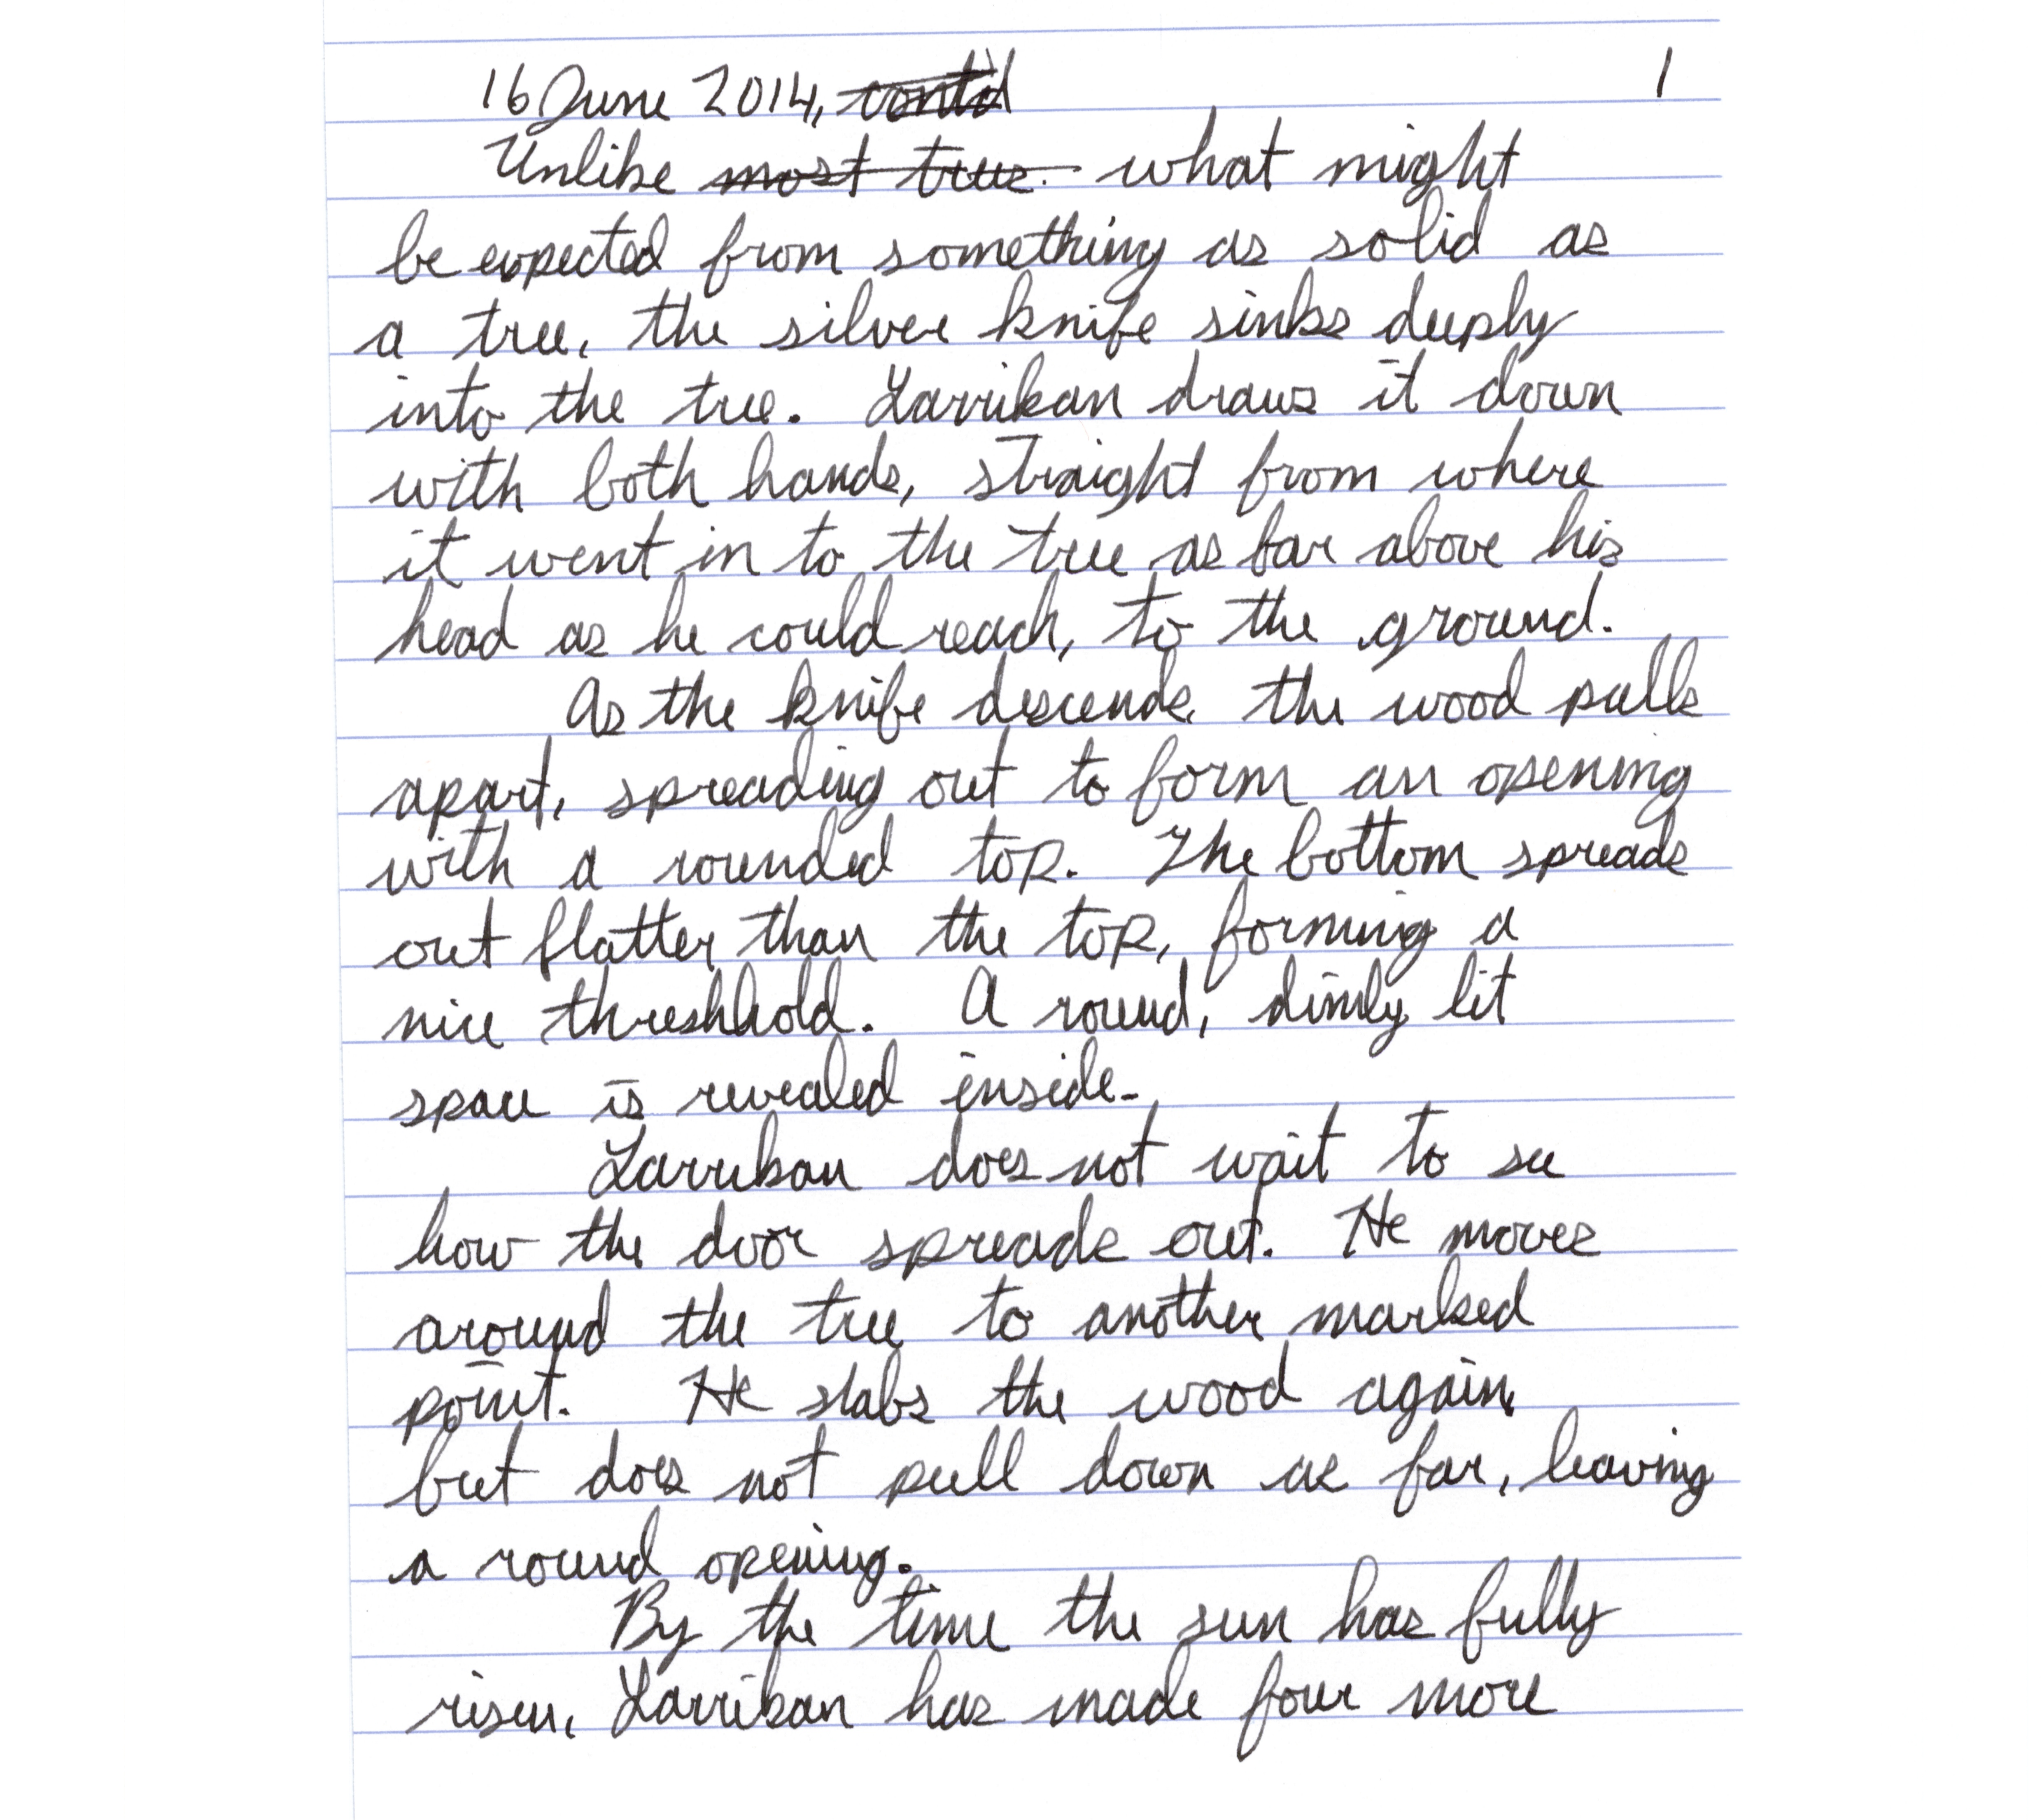 16 June 2014, cont'd 1
Unlike most trees what might
be expected from something as solid as
a tree, the silver knife sinks deeply
into the tree. Larrikan draws it down
with both hands, straight from where
it went in to the tree as far above his
head as he could reach, to the ground.
As the knife descends, the wood pulls
apart, spreading out to form an opening
with a rounded top. The bottom spreads
out flatter than the top, forming a
nice threshhold. A round, dimly lit
space is revealed inside.
Larrikan does not wait to see
how the door spreads out. He moves
around the tree to another marked
point. He stabs the wood again,
but does not pull down as far, leaving
a round opening.
By the time the sun has fully
risen, Larrikan has made four more